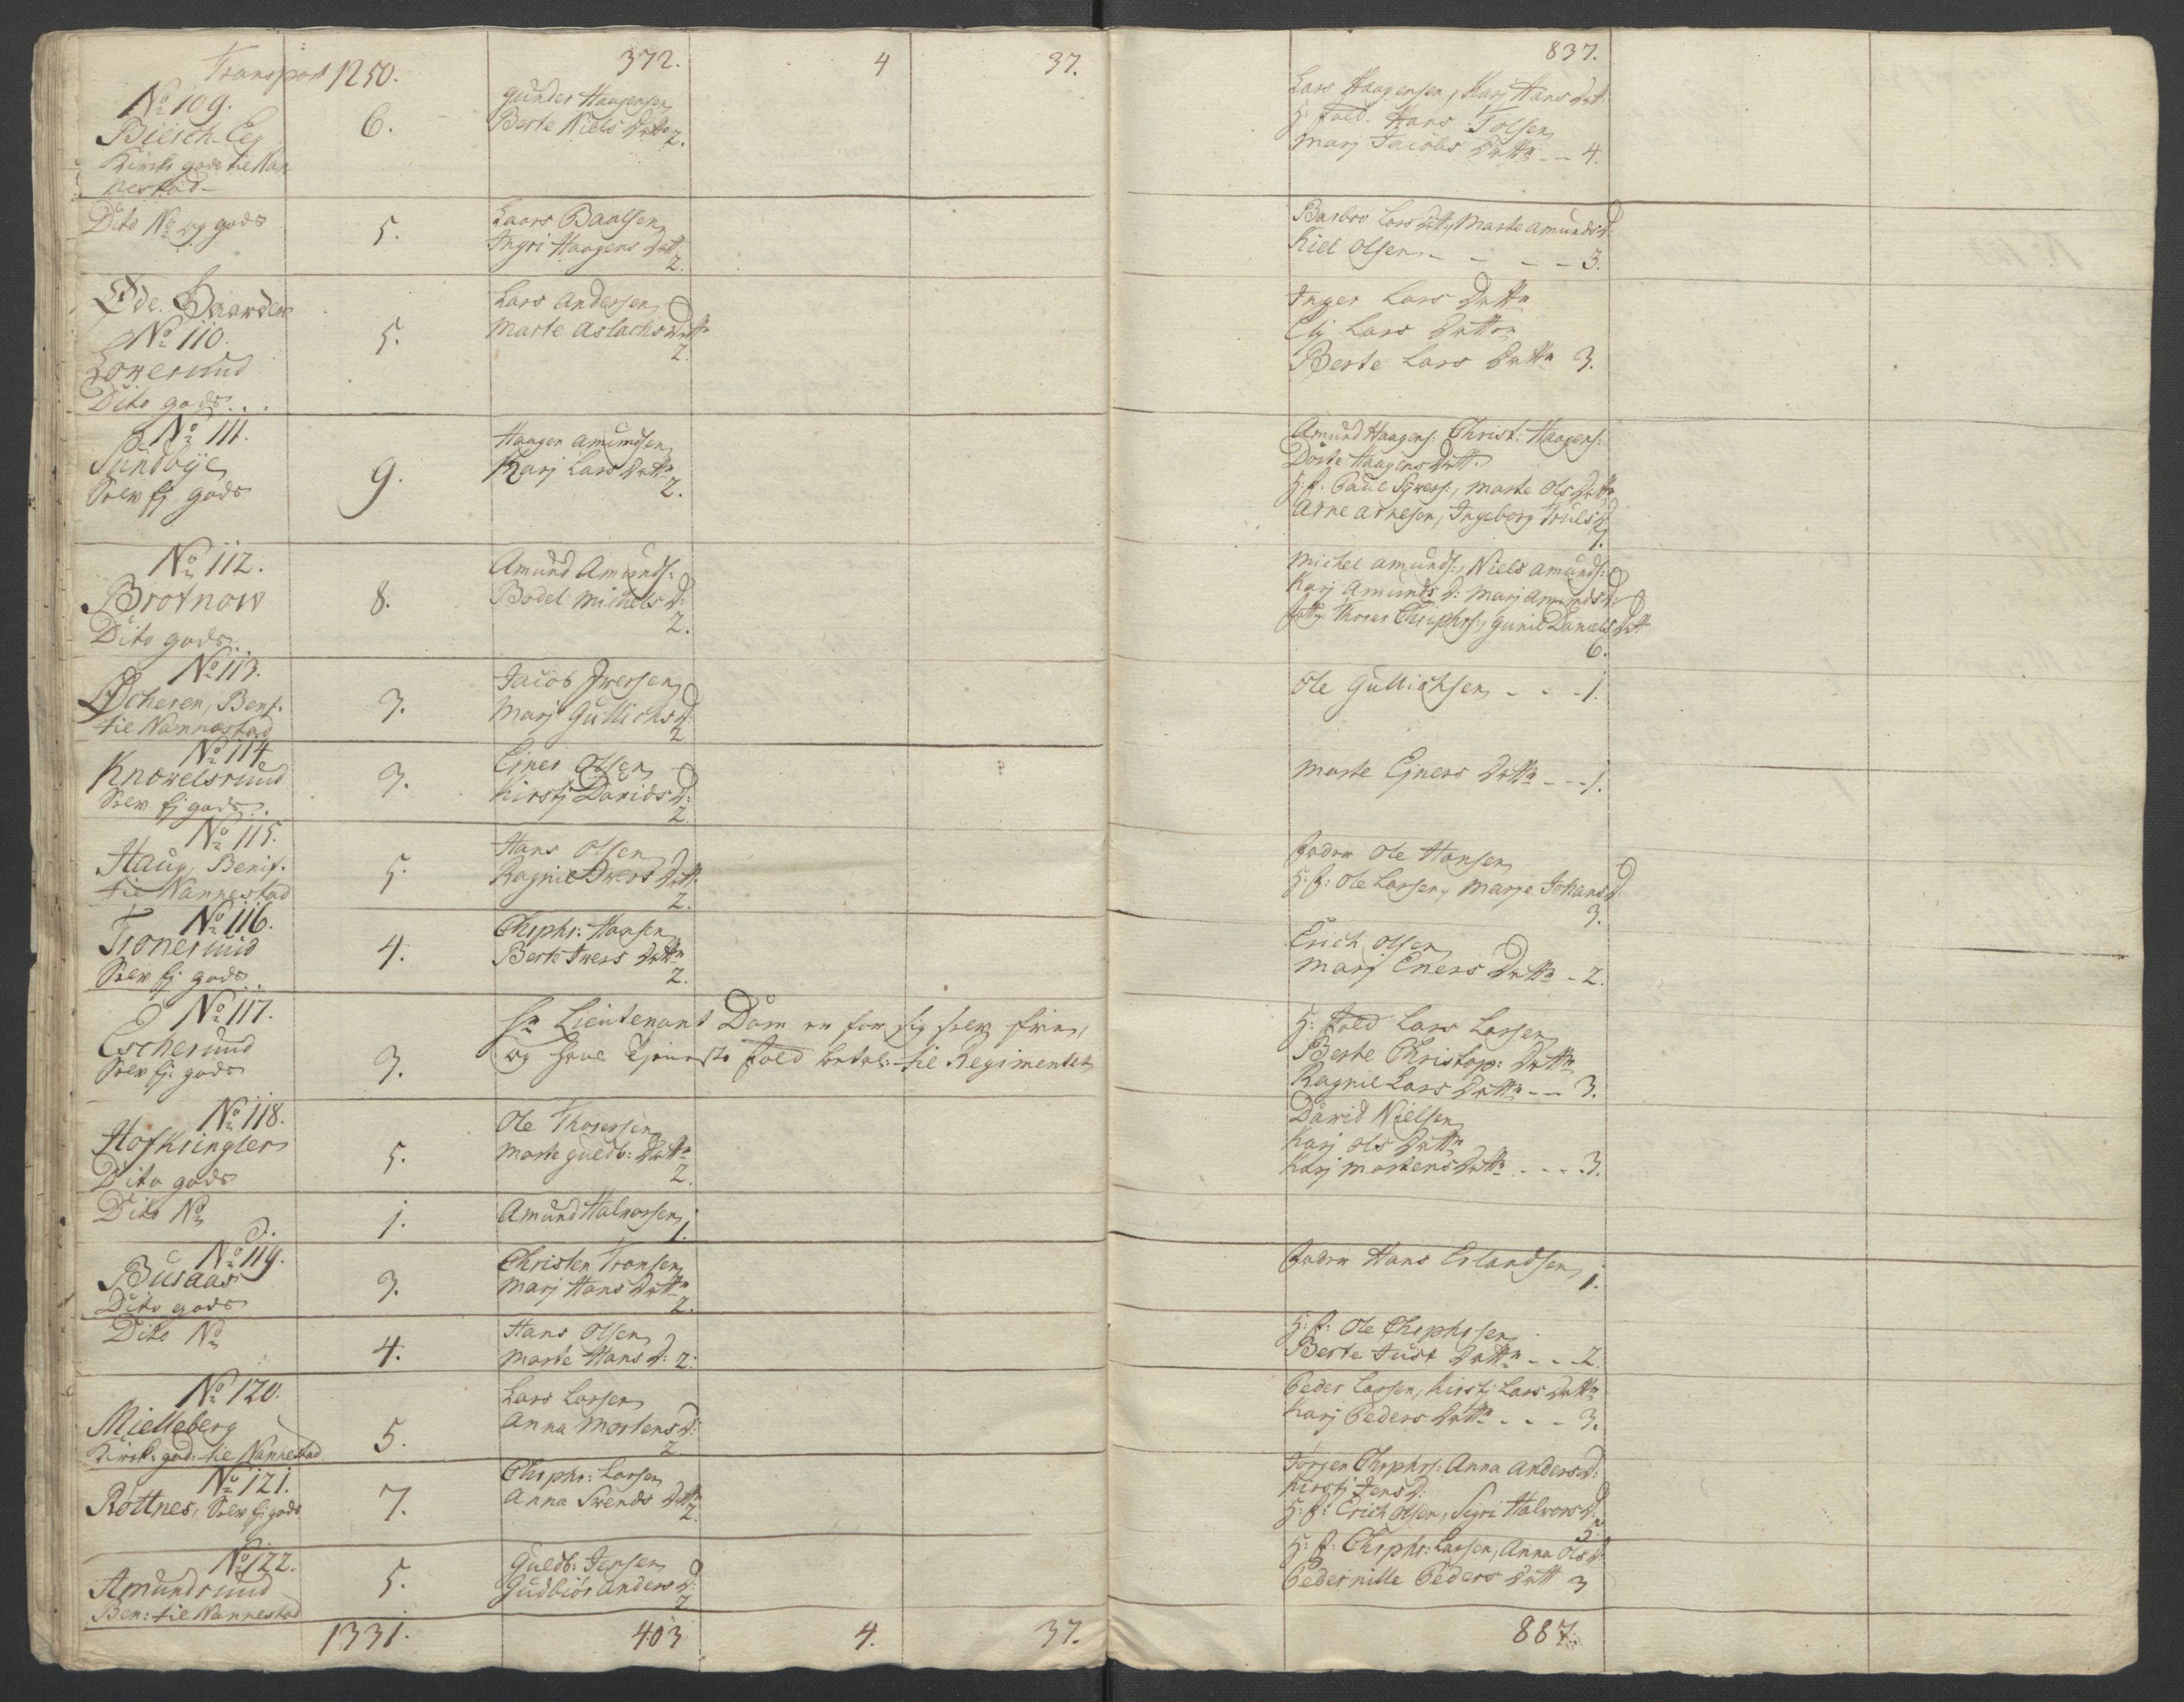 Transport 1250. 372. 4 37. 837.
No 109.
Biesch-Eeg
Kirke gods til Nan
nestad
6.
Gunder Haagensen
Berte Niels Dattr 2.
Lars Haagensen, Karj Hans Datt
H: fold. Hans Tolsen
Marj Jacobs Dattr - - 4.
Dito No og gods
5.
Laars Baalsen
Ingri Haagens Datt
2.
Barbro Lars Dattr, Marte Amunds D
Kiel Olsen - - - - 3.
Øde Gaarden
No 110.
Lowerund
Dito gods . . .
5.
Lars Andersen
Marte Aslachs Dattr
2.
Inger Lars Dattr
Elj Lars Datter
Berte Lars Dattr 3.
No 111.
Sundbye
Selv Ej. gods
9.
Haagen Amundsen
Karj Lars Dattr
2.
Amund Haagens: Christ: Haagens:
Dorte Haagens Datt.
H: f. Paul Sywers:, Marte Ols Dattr
Arne Arnesen, Ingeborg Truls D
7.
No 112.
Brotnow
Dito gods . .
8.
Amund Amunds:
Bodel Michels D:
2.
Michel Amunds:, Niels Amunds:
Karj Amunds D: Marj Amunds D:
Thores Chriphrs:, Gunil Daniels Datt
6.
No 113.
Ascheren, Benf.
til Nannestad
3.
Jacob Iwersen
Marj Gullichs D:
2
Ole Gullichsen - - - 1.
No 114
Knowelsrund
Selv Ej gods . .
3.
Ejner Olsen
Kirstj Davids D:
2.
Marte Ejners Dattr - - 1.
No 115.
Haug, Benif.
til Nannestad
5.
Hans Olsen
Ragnil Iwers Datt.
2.
Fader Ole Hansen
H: f: Ole Larsen, Marje Johans D.
3.
No 116.
Tronerund
Selv Ej gods . .
4.
Chrphr: Hansen
Berte Iwers Dattr
2.
Erich Olsen
Marj Eners Dattr - 2.
No 117.
Escherund
Selv Ej: gods
3.
Hr Lieutenant Dam er for sig selv frie,
og have tjeneste fold betal: til Regimentet
H: fold Lars Larsen
Berte Christop: Dattr
Ragnil Lars Dattr - - 3.
No 118.
Hofkringler
Dito gods
5.
Ole Thoresen
Marte Guldb: Dattr
2.
David Nielsen
Karj Ols Dattr
Karj Mortens Dattr - - - - 3.
Dito No
1.
Amund Halvorsen
1.
No 119.
Buraas
Dito gods
3.
Christen Tronsen
Marj Hans Dattr
2.
Fader Hans Erlandsen
1.
Dito No
4.
Hans Olsen
Marte Hans D: 2:
H: f: Ole Chrphrsen
Berte Just Dattr - - - 2.
No 120.
Mielleberg
Kirk: god: til Nannestad
5.
Lars Larsen
Anna Mortens D:
2
Peder Larsen, Kirstj Lars Dattr
Karj Peders Dattr - - - 3.
No 121.
Röttnes, Selv Ej gods
7.
Chrphr: Larsen
Anna Swends Dattr
2.
Jörgen Chrphrs: Anna Anders D:
Kirstj Jens D:
H: f: Erich Olsen, Sigri Halwors D:
5.
No 122.
Amundrund
Ben: til Nannestad
5.
Guldb: Jensen
Gudbiör Anders D:
2
H: f: Chrphr: Larsen, Anna Ols D:
Pedernille Peders Datt 3
1331. 403 4. 37. 887.